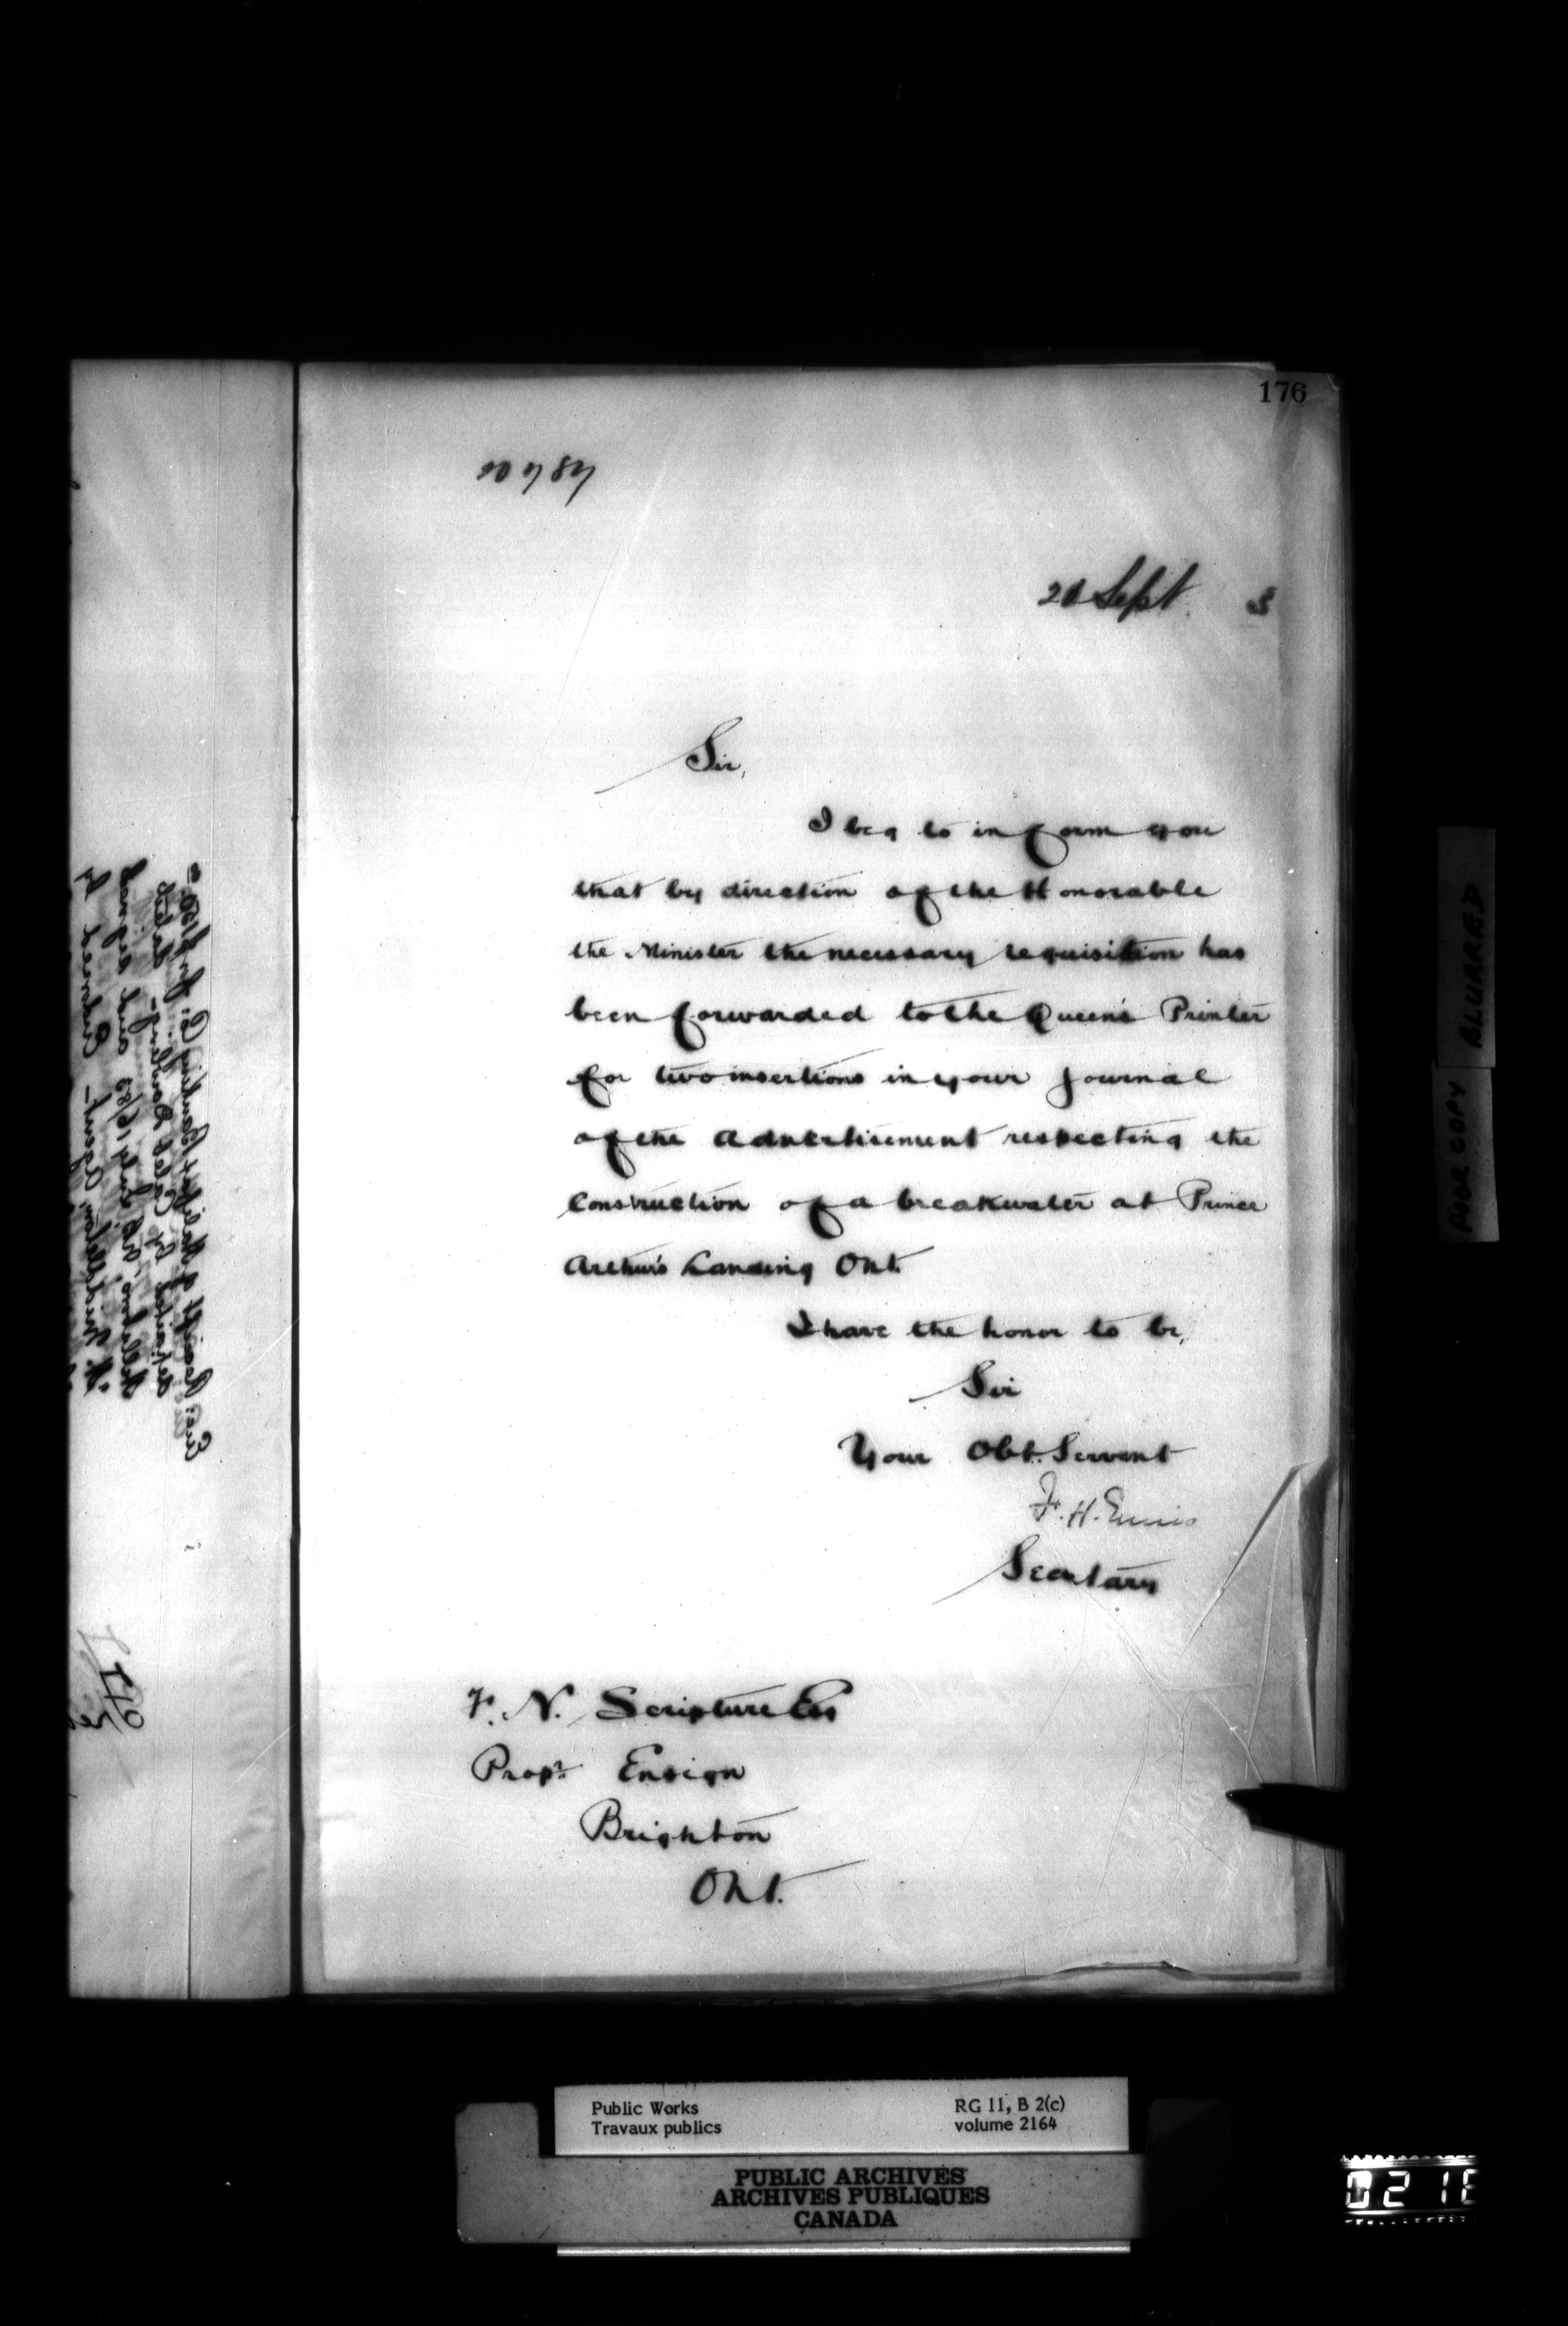 176
21 Sept. 3
Sir,
I beg to inform you
that by direction of the Honorable
the Minister the necessary requisition has
been forwarded to the Queen's Printer
for two insertions in your Journal
of the Advertisement respecting the
Construction of a breakwater at Prince
Arthur's Landing Ont.
I have the honor to be,
Sir
Your Obt. Servant
F. H. Ennis
Secretary
F. N. Scripture Esq
Propr Ensign
Brighton
Ont.
POOR COPY BLURRED
Public Works RG 11, B 2(c)
Travaux publics volume 2164
PUBLIC ARCHIVES
ARCHIVES PUBLIQUES
CANADA